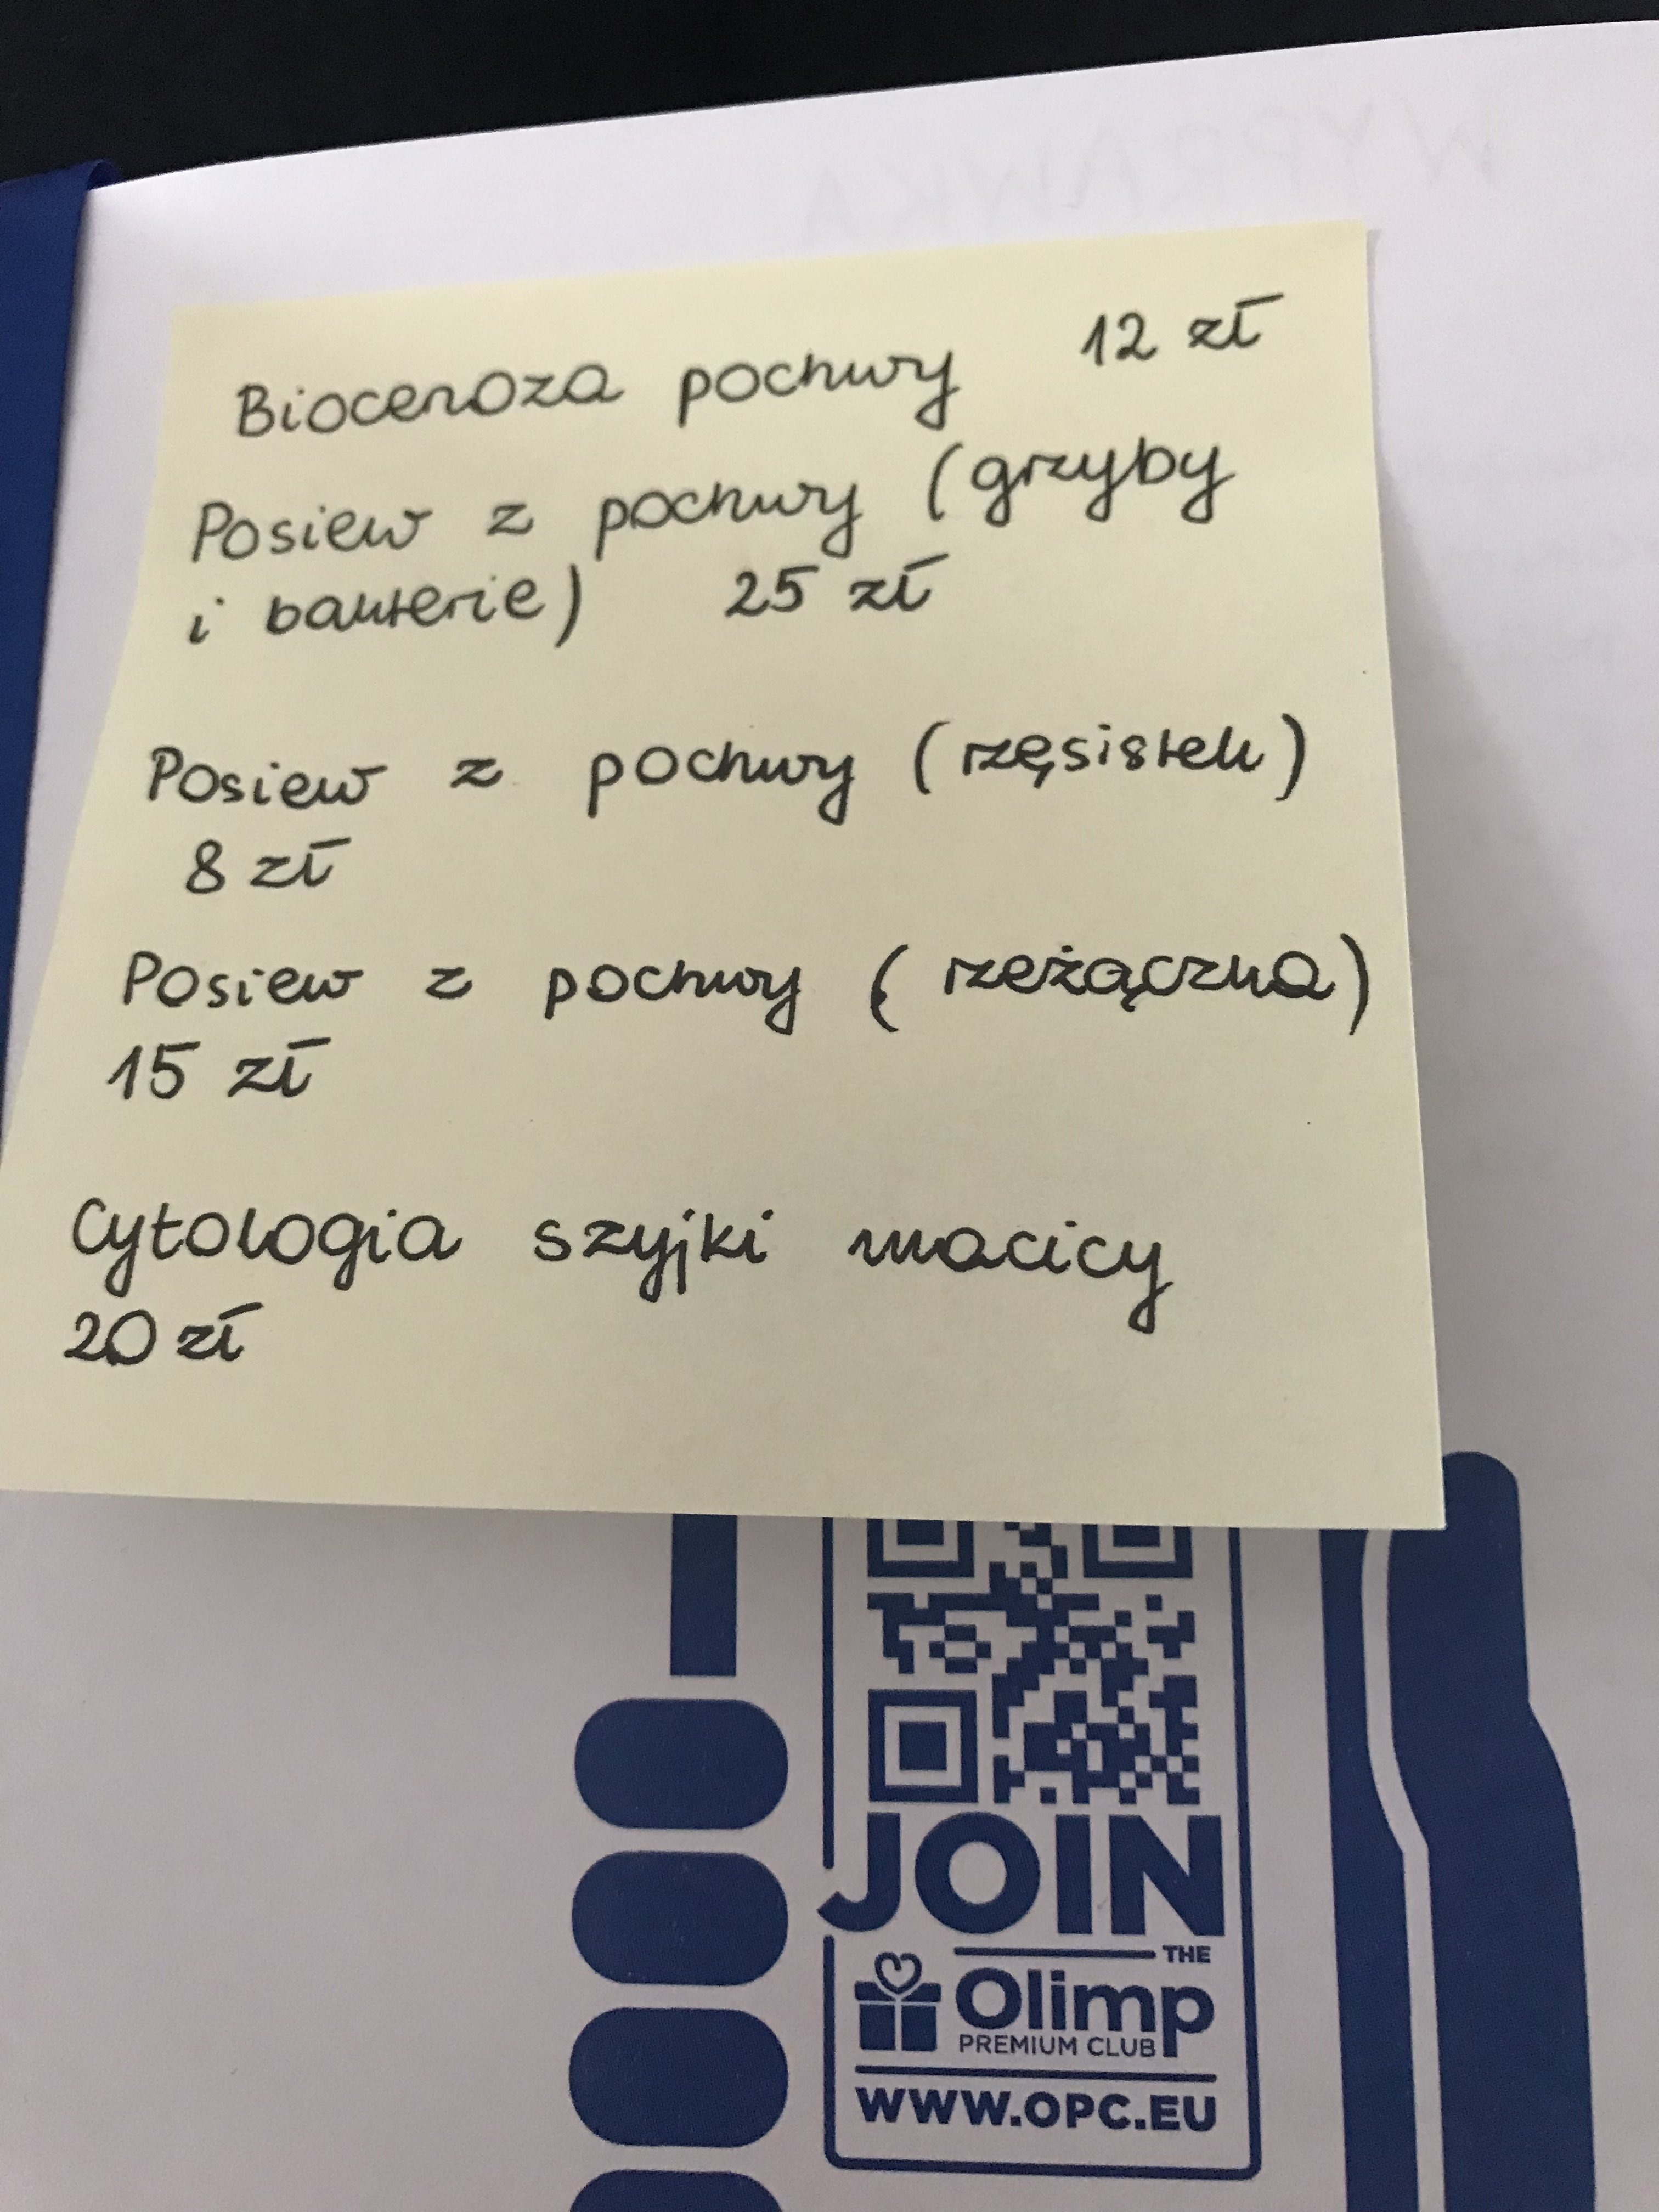 WYPRAWKA
Bioceroza pochwy 12 zł
Posiew z pochwy (grzyby
i bakterie) 25 zł
Posiew z pochwy (rzęsistek)
8 zł
Posiew z pochwy (rzeżączka)
15 zł
Cytologia szyjki macicy
20 zł
JOIN
THE
Olimp
PREMIUM CLUB
WWW.OPC.EU